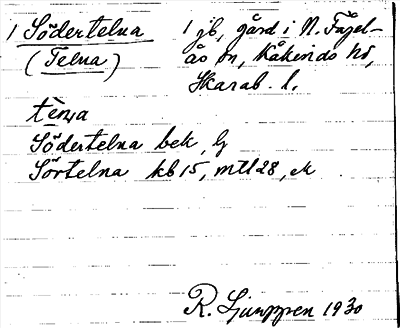 1 Södertelna 1 jb, gård i N. Fågel-
(Telna) ås sn, Kåkinds hd,
Skarab. l.
tèṇa
Södertelna bek, G
Sörtelna kb 15, mtl 28, ek
R. Ljunggren 1930